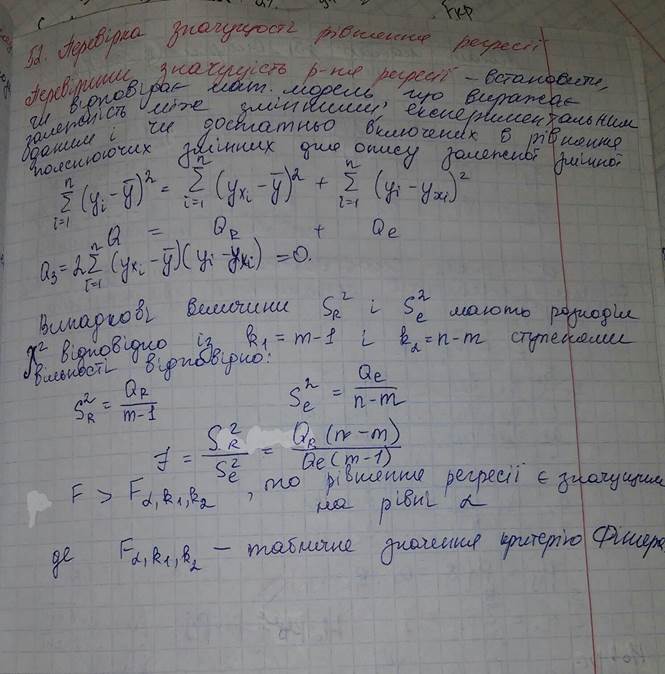 Fкр
52. Перевірка значущості рівняння регресії
Перевірити значущість р-ня регресії – встановити,
чи відповідає мат. модель, що виражає
залежність між змінними, експериментальним
даним і чи достатньо включених в рівняння
пояснюючих змінних для опису залежної змінної
∑ⁿᵢ₌₁ (yᵢ - ȳ)² = ∑ⁿᵢ₌₁ (yₓᵢ - ȳ)² + ∑ⁿᵢ₌₁ (yᵢ - yₓᵢ)²
Q = Q_R + Q_e
Q₃ = 2∑ⁿᵢ₌₁ (yₓᵢ - ȳ)(yᵢ - yₓᵢ) = 0.
Випадкові величини S_R² і S_e² мають розподіл
χ² відповідно із k₁ = m-1 і k₂ = n-m ступенями
вільності відповідно:
S_R² = Q_R / (m-1) S_e² = Q_e / (n-m)
F = S_R² / S_e² = Q_R (n-m) / Q_e (m-1)
F > F_α,k₁,k₂ , то рівняння регресії є значущим
на рівні α
де F_α,k₁,k₂ – табличне значення критерію Фішера